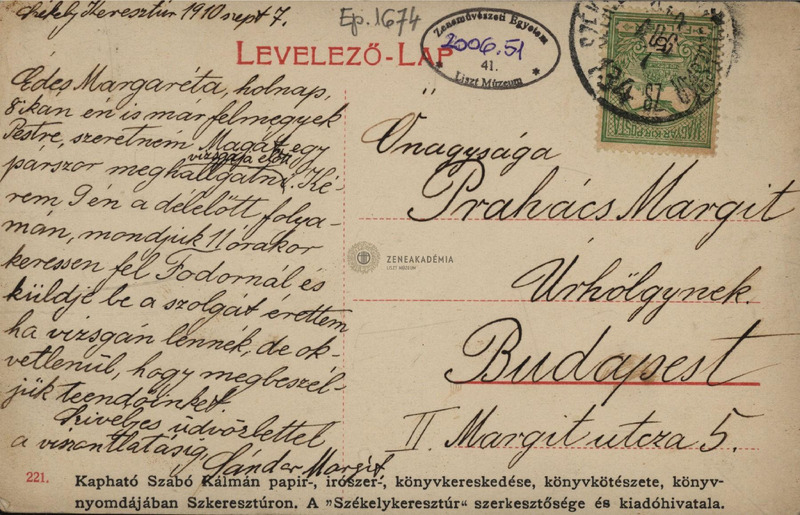 Székely Keresztúr 1910 szept 7.
Ep. 1674
LEVELEZŐ-LAP
Zeneművészeti Egyetem
2006.51
41.
Liszt Múzeum
134
MAGYAR KIR. POSTA
Édes Margaréta, holnap,
8-kan én is már felmegyek
Pestre, szeretném Magát egy
vizsgája előtt
párszor meghallgatni. Ké-
rem 9én a délelőtt folya-
mán, mondjuk 11 órakor
keressen fel Fodornál és
küldje be a szolgát érettem
ha vizsgán lennék, de ok-
vetlenül, hogy megbeszél-
jük teendőinket.
Szivéljes üdvözlettel
a viszontlátásig
Sándor Margit
Őnagysága
Prahács Margit
Úrhölgynek.
Budapest
II. Margit utcza 5.
ZENEAKADÉMIA
LISZT MÚZEUM
221.
Kapható Szabó Kálmán papir-, irószer-, könyvkereskedése, könyvkötészete, könyv-
nyomdájában Szkeresztúron. A "Székelykeresztúr" szerkesztősége és kiadóhivatala.